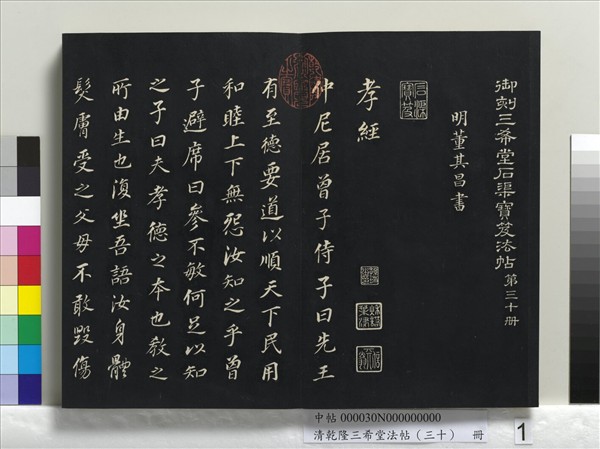 御刻三希堂石渠寶笈法帖 第三十册
明董其昌書
石渠寶笈
孝經
仲尼居曾子侍子曰先王
有至德要道以順天下民用
和睦上下無怨汝知之乎曾
子避席曰參不敏何足以知
之子曰夫孝德之本也教之
所由生也復坐吾語汝身體
髮膚受之父母不敢毀傷
中帖 000030N000000000
清乾隆三希堂法帖（三十） 冊
1